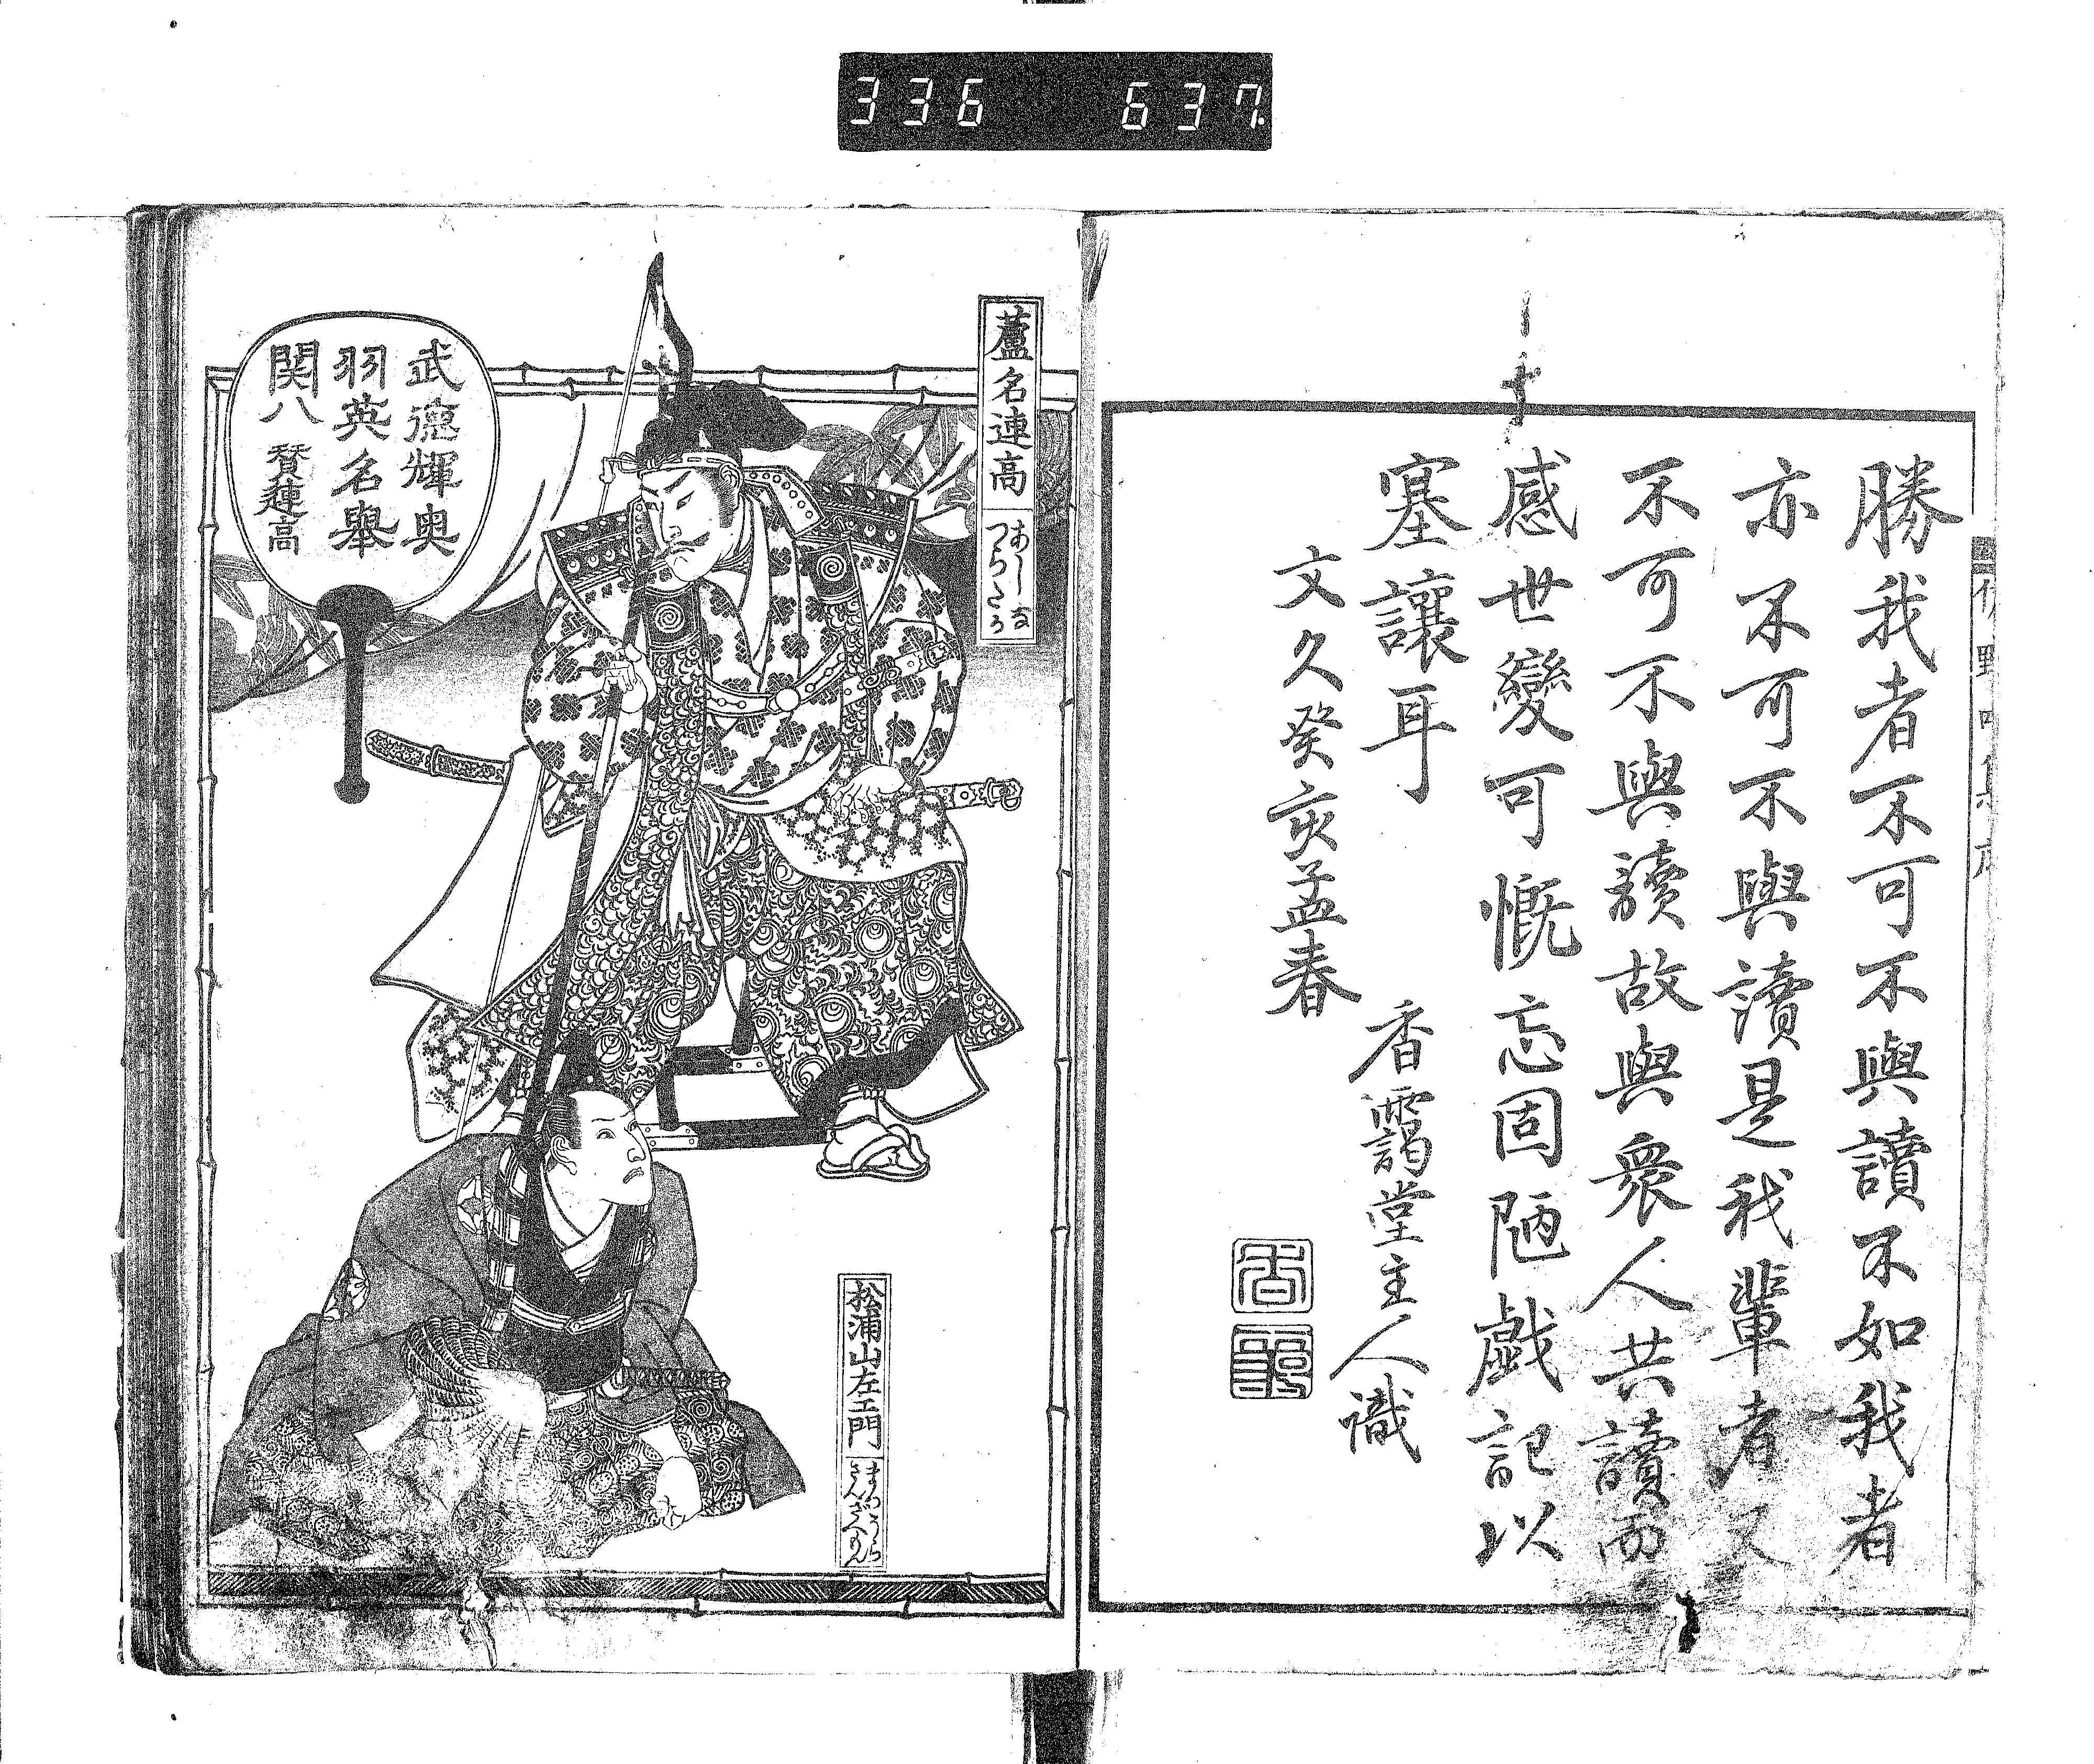 336 637
勝我者不可不與讀不如我者
亦不可不與讀是我輩者又
不可不與讀故與衆人共讀而
感世變可慨忘固陋戯記以
塞讓耳
香靄堂主人識
文久癸亥孟春
蘆名連高
あしな
つらたか
武徳輝奥
羽英名舉
関八
賛連高
松浦山左エ門
まつうら
さんざへもん